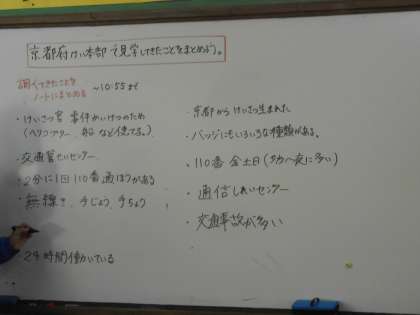 京都府けい本部で見学してきたことをまとめよう。
調べてきたことを
ノートにまとめる ~10:55まで
・けいさつ官 事件かいけつのため
(ヘリコプター、船など使ってる。)
・交通管せいセンター
・2分に1回110番通ほうがある
・無線き、手じょう、手ちょう
・24時間働いている
・京都からけいさつ生まれた
・バッジにもいろいろな種類がある。
・110番 金土日(夕方~夜に多い)
・通信しれいセンター
・交通事故が多い